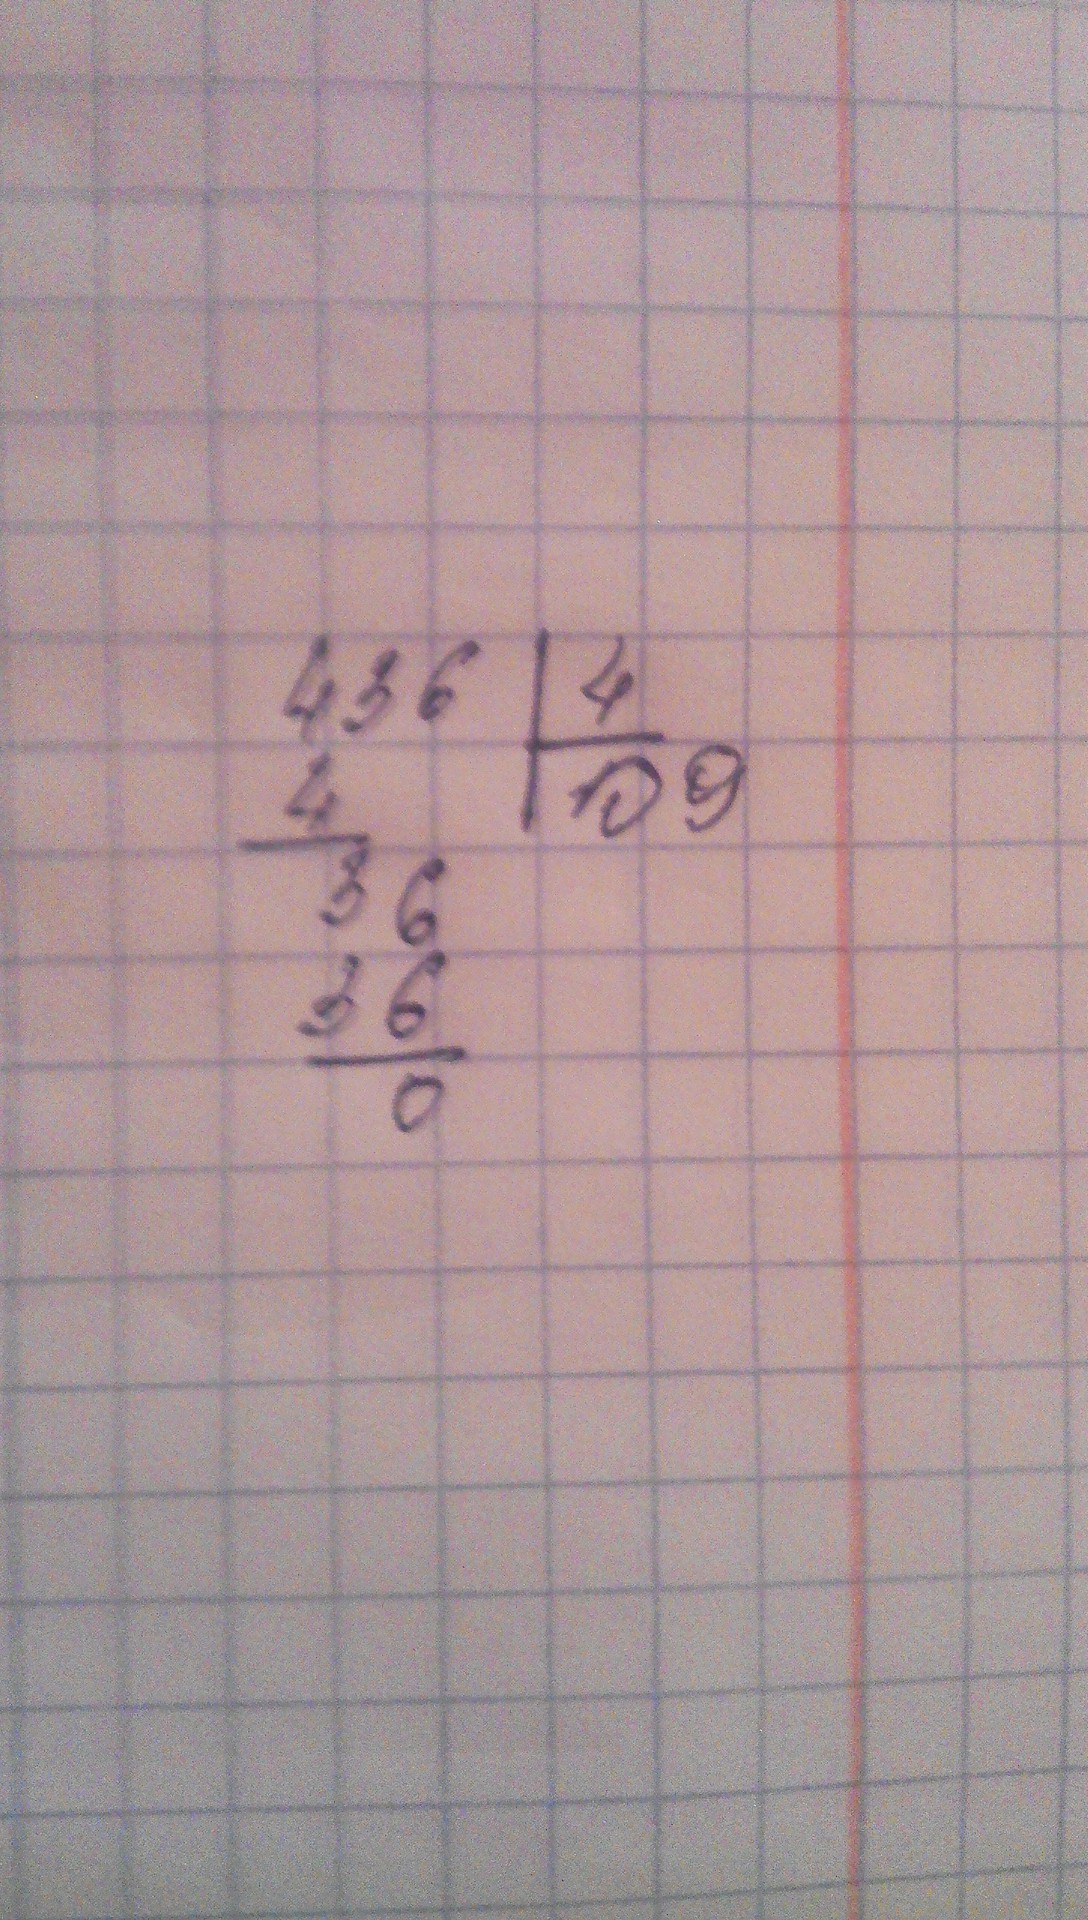 436 4
4 109
36
36
0